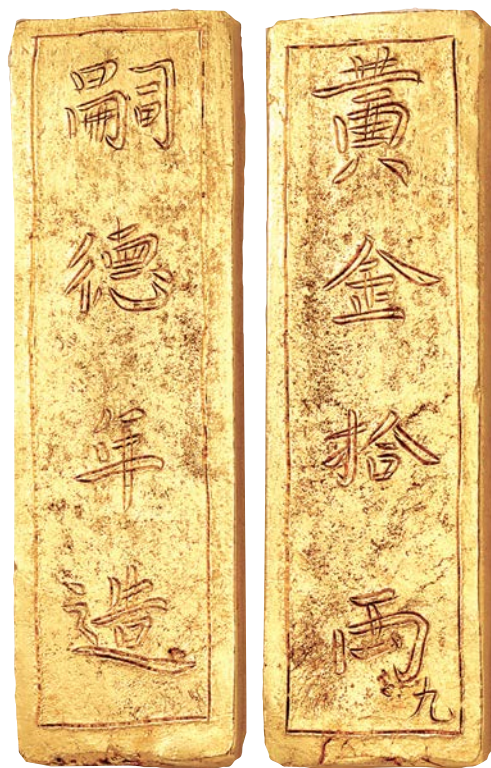 嗣德年造
黃金拾兩
九